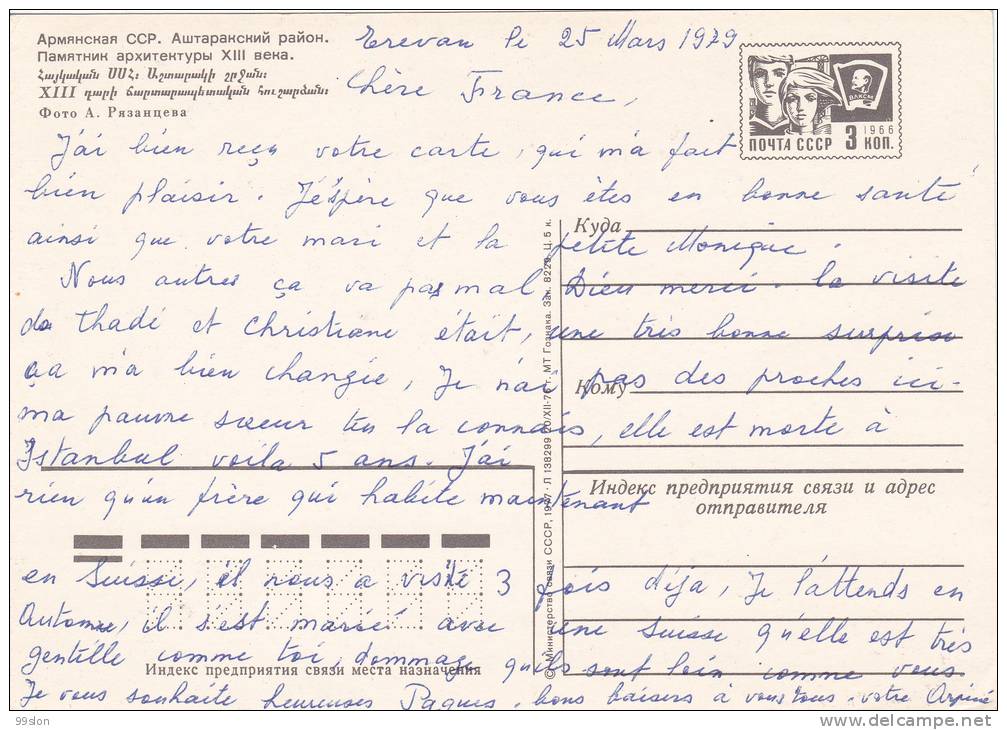 Армянская ССР. Аштаракский район.
Памятник архитектуры XIII века.
Հայկական ՍՍՀ։ Աշտարակի շրջան։
XIII դարի ճարտարապետական հուշարձան։
Фото А. Рязанцева
ВЛКСМ
1966
ПОЧТА СССР 3 КОП.
Erevan le 25 Mars 1979
Chère France,
J'ai bien reçu votre carte, qui m'a fait
bien plaisir. J'éspère que vous êtes en bonne santé
ainsi que votre mari et la petite Monique.
Nous autres ça va pas mal Dieu merci. la visite
de Thadé et Christiane était, une très bonne surprise
ça m'a bien changie, Je n'ai pas des proches ici-
ma pauvre sœur tu la connais, elle est morte à
Istanbul voila 5 ans. J'ai
rien qu'un frère qui habite maintenant
en Suissi, il nous a visité 3 fois déja, Je l'attends en
Automne, il s'est marié avec une Suisse qu'elle est très
gentille comme toi, dommage qu'ils sont loin comme vous
Je vous souhaite heureuses Paques. bons baisers à vous tous. votre Arpiné
Куда
Кому
Индекс предприятия связи и адрес
отправителя
Индекс предприятия связи места назначения
© Министерство связи СССР, 1977. Л 138299 20/XII-76 г. МТ Гознака. Зак. 8229. Ц. 5 к.
99slon
www.delcampe.net